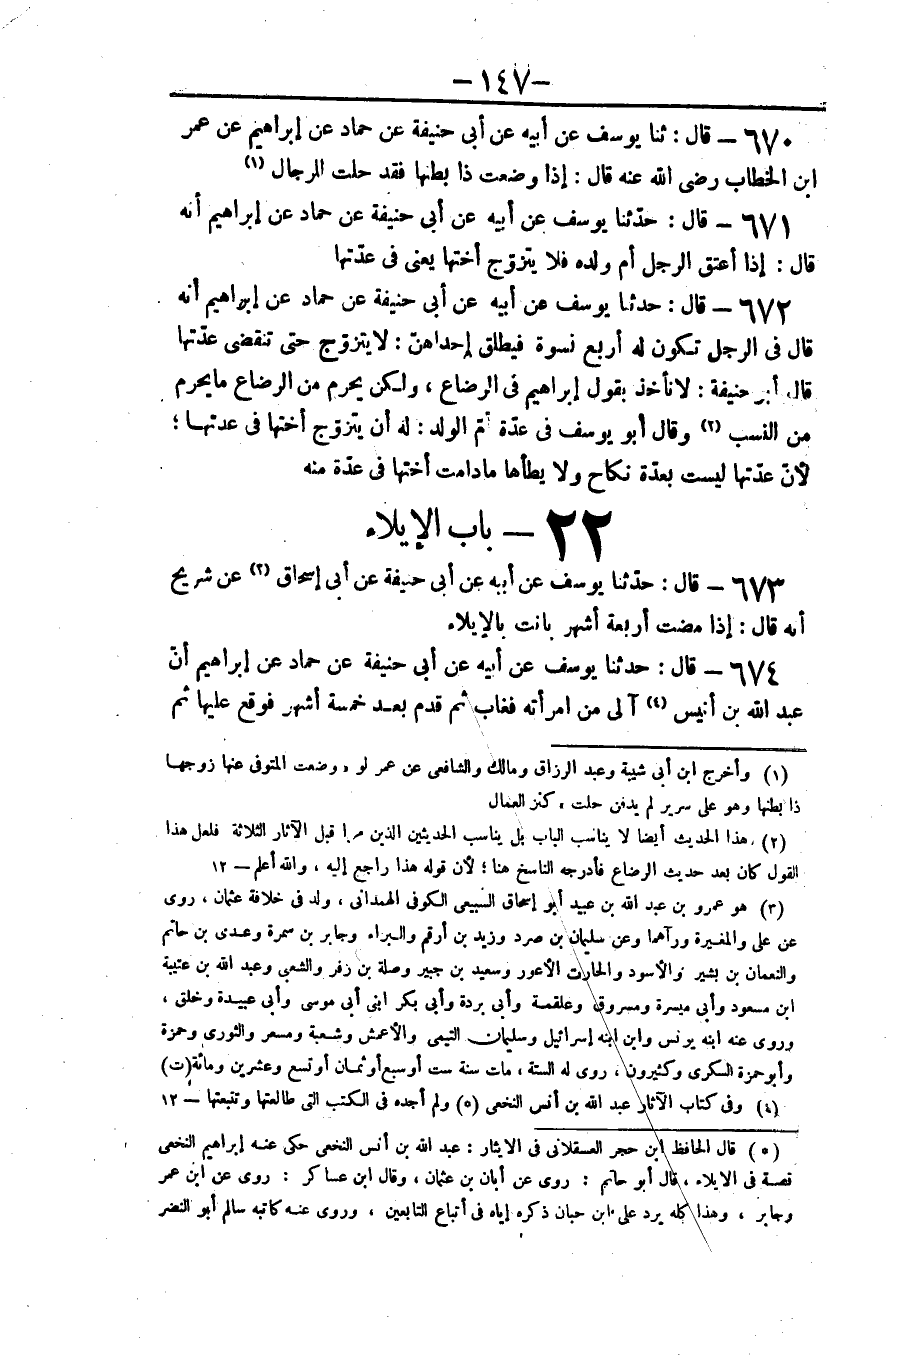 -١٤٧-
٦٧٠ - قال : ثنا يوسف عن أبيه عن أبى حنيفة عن حماد عن إبراهيم عن عمر
ابن الخطاب رضى الله عنه قال : إذا وضعت ذا بطنها فقد حلت للرجال (١)
٦٧١ - قال : حدّثنا يوسف عن أبيه عن أبى حنيفة عن حماد عن إبراهيم أنه
قال : إذا أعتق الرجل أم ولده فلا يتزوّج أختها يعنى فى عدّتها
٦٧٢ - قال : حدثنا يوسف عن أبيه عن أبى حنيفة عن حماد عن إبراهيم أنه
قال فى الرجل تكون له أربع نسوة فيطلق إحداهنّ : لايتزوّج حتى تنقضى عدّتها
قال أبو حنيفة : لانأخذ بقول إبراهيم فى الرضاع ، ولكن يحرم من الرضاع مايحرم
من النسب (٢) وقال أبو يوسف فى عدّة أم الولد : له أن يتزوّج أختها فى عدتها ؛
لأنّ عدّتها ليست بعدّة نكاح ولا يطأها مادامت أختها فى عدّة منه
٢٢ - باب الإيلاء
٦٧٣ - قال : حدّثنا يوسف عن أبيه عن أبى حنيفة عن أبى إسحاق (٣) عن شريح
أنه قال : إذا مضت أربعة أشهر بانت بالإيلاء
٦٧٤ - قال : حدثنا يوسف عن أبيه عن أبى حنيفة عن حماد عن إبراهيم أنّ
عبد الله بن أنيس (٤) آلى من امرأته فغاب ثم قدم بعد خمسة أشهر فوقع عليها ثم
(١) وأخرج ابن أبى شيبة وعبد الرزاق ومالك والشافعى عن عمر لو وضعت المتوفى عنها زوجها
ذا بطنها وهو على سرير لم يدفن حلت ، كنز العمال
(٢) هذا الحديث أيضا لا يناسب الباب بل يناسب الحديثين الذين مرا قبل الآثار الثلاثة فلعل هذا
القول كان بعد حديث الرضاع فأدرجه الناسخ هنا ؛ لأن قوله هذا راجع إليه ، والله أعلم - ١٢
(٣) هو عمرو بن عبد الله بن عبيد أبو إسحاق السبيعى الكوفى الهمدانى ، ولد فى خلافة عثمان ، روى
عن على والمغيرة ورآهما وعن سليمان بن صرد وزيد بن أرقم والبراء وجابر بن سمرة وعدى بن حاتم
والنعمان بن بشير والأسود والحارث الأعور وسعيد بن جبير وصلة بن زفر والشعبى وعبد الله بن عتيبة
ابن مسعود وأبى ميسرة ومسروق وعلقمة وأبى بردة وأبى بكر ابنى أبى موسى وأبى عبيدة وخلق ،
وروى عنه ابنه يونس وابن ابنه إسرائيل وسليمان التيمى والأعمش وشعبة ومسعر والثورى وحمزة
وأبو حمزة السكرى وكثيرون ، روى له الستة ، مات سنة ست أوسبع أوثمان أوتسع وعشرين ومائة (ت)
(٤) وفى كتاب الآثار عبد الله بن أنس النخعى (٥) ولم أجده فى الكتب التى طالعتها وتتبعتها - ١٢
(٥) قال الحافظ ابن حجر العسقلانى فى الايثار : عبد الله بن أنس النخعى حكى عنه إبراهيم النخعى
قصة فى الايلاء ، قال أبو حاتم : روى عن أبان بن عثمان ، وقال ابن عساكر : روى عن ابن عمر
وجابر ، وهذا كله يرد على ابن حبان ذكره إياه فى أتباع التابعين ، وروى عنه كاتبه سالم أبو النضر